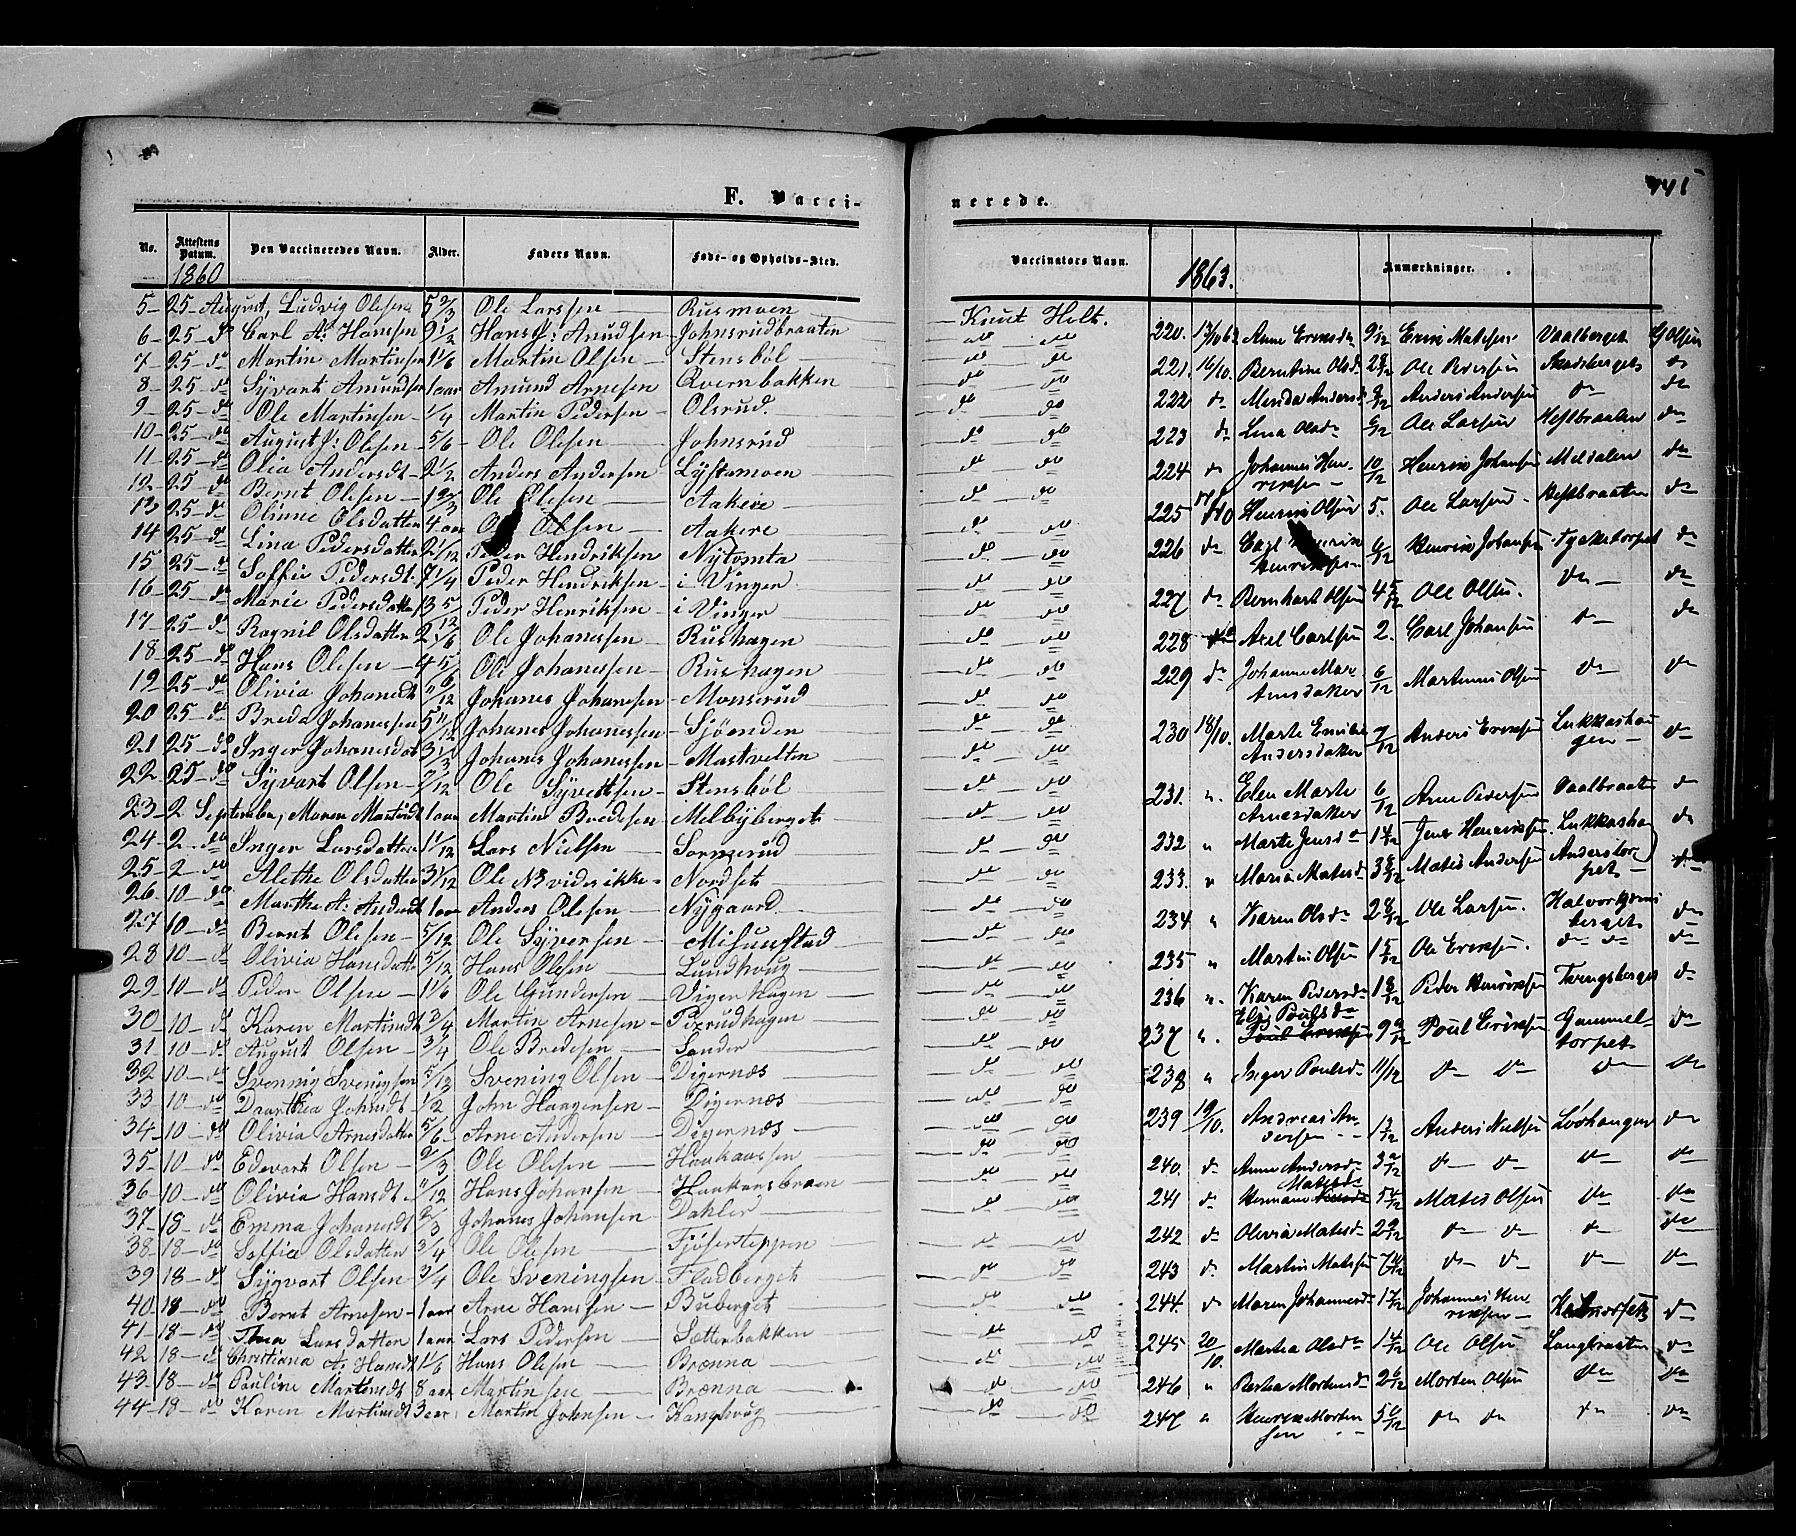 441
F. Vacci-
nerede.
No. Attestens Datum. Den Vaccineredes Navn. Alder. Faders Navn. Føde- og Opholds-Sted.
Vaccinators Navn. Anmærkninger.
1860
5 25 August, Ludvig Olesen 5 2/3 Ole Larssen Rusmoen Knut Holt.
6 25 do Carl A: Hanssen 9 1/2 Hans Amudsen Johnsrudbraaten do do
7 25 do Martin Martinsen 1 1/6 Martin Olsen Stensbøl do do
8 25 do Syvart Amundsen 1 aar Amund Arnesen Qvernbakken do do
9 25 do Ole Martinsen 1/4 Martin Pedersen Olsrud. do do
10 25 do August J: Olesen 5/6 Ole Olesen Johnsrud do do
11 25 do Olia Andersdt 2 1/2 Anders Andersen Lystamoen do do
12 25 do Bernt Olesen 1 2/3 Ole Olesen Aakere do do
13 25 do Olinne Olsdatter 4 aar Ole Olsen Aakere do do
14 25 do Lina Pedersdatter 2 1/12 Peder Hendriksen Nytomta do do
15 25 do Soffie Pedersdt. 7 1/4 Peder Hendriksen i Vinger do do
16 25 do Marie Pedersdatter 3 5/12 Peder Henriksen i Vinger do do
17 25 do Ragnil Olsdatter 2 1/6 Ole Johanesen Rushagen do do
18 25 do Hans Olesen 4 5/6 Ole Johanesen Rushagen do do
19 25 do Olivia Johanesdt 11/12 Johanes Johanesen Monsrud do do
20 25 do Breda Johanessen 5 11/12 Johanes Johanessen Sjøenden do do
21 25 do Inger Johanesdat 3 1/3 Johanes Johanessen Mastvelten do do
22 25 do Syvart Olsen 7/12 Ole Syvertsen Stensbøl do do
23 2 September, Maren Martinsdt 1 aar Martin Bredesen Melbyberget do do
24 2 do Inger Larsdatter 1 1/12 Lars Nielsen Sorperud do do
25 2 do Alethe Olsdatter 3 1/12 Ole N3 vides ikke Nordset do do
26 10 do Marthe A: Andersdt 1 aar Anders Olesen Nygaard do do
27 10 do Bernt Olesen 5/12 Ole Syversen Misunstad do do
28 10 do Olivia Hansdatter 5/12 Hans Olesen Lundhoug do do
29 10 do Peder Olsen 1 1/6 Ole Gundersen Vigerhagen do do
30 10 do Karen Martinsdt 3/4 Martin Arnesen Pexrudhagen do do
31 10 do August Olsen 3/4 Ole Bredesen Sander do do
32 10 do Svennig Svenigsen 5/12 Svening Olsen Digernæs do do
33 10 do Daarthea Johnsdt 1/2 John Haagensen Digernæs do do
34 10 do Olivia Arnesdatter 5/6 Arne Andersen Digernæs do do
35 10 do Edevart Olsen 2/3 Ole Olesen Haukaassen do do
36 10 do Olivia Hansdt 11/12 Hans Johansen Haukaasbraaen do do
37 18 do Emma Johanesdt 2/3 Johanes Johansen Dahler do do
38 18 do Soffia Olsdatter 3/4 Ole Olesen Fjøserteppen do do
39 18 do Sygvart Olsen 3/4 Ole Sveningsen Fladberget do do
40 18 do Bernt Arnesen 1 aar Arne Hanssen Buberget do do
41 18 do Thea Larsdatter 1 aar Lars Pedersen Sætterbakken do do
42 18 do Christiana A: Hansdt 1 1/6 Hans Olesen Brænna do do
43 18 do Pauline Martinsdt 8 aar Martinsen Brænna do do
44 18 do Karen Martinsdt 3 aar Martin Johnsen Kanghoug do do
1863.
220. 13/10 63 Anne Ericsd. 9/12 Eric Matesen Vaalberget G. Olsen
221. 16/10. Berntine Olsd. 2 8/12 Ole Pedersen Skadberget do
222 do Menda Andersd. 9/12 Anders Andersen do do
223 do Lina Olsd. 6/12 Ole Larsen Heftbraaten do
224 do Johannes Hen- 10/12 Henrik Johansen Meldalen do
riksen
225 17/10 Henrik Olsen 5. Ole Larsen Heftbraaten do
226 do Carl Henrik 6/12 Henrik Johansen Fyaketorpet do
Henriksen
227 do Bernhart Olsen 4 5/12 Ole Olsen. do do
228 do Axel Carlsen 2. Carl Johansen do do
229 do Johanne Marie 6/12 Martinus Olsen do do
230 18/10. Marte Emilie 7/12 Anders Ericksen Lukkashau do
Andersdater gen
231. " Elen Marte 6/12 Arne Pedersen Vaalbraaten do
Arnesdater
232 " Marte Jensd. 1 4/12 Jens Henriksen Lukkasha do
233. " Maria Matesd. 3 8/12 Mates Andersen Anderstor- do
pet
234 " Karen Olsd. 2 8/12 Ole Larsen. Halvorsgreni do
berget
235 " Martin Olsen 1 5/12 Ole Ericksen. do do do
236 " Karen Pedersd. 1 8/12 Peder Henriksen Tvengsberget do
237 " Elis Poulsd. 9 2/12 Poul Ericksen Gammel- do
torpet
238 " Inger Poulsd. 11/12 do do do do
239 19/10. Andreas An- 1 3/12 Anders Nielsen Lövhaugen do
dersen
240. do Anne Andersd. 3 2/12 do do do do
241 do Hermane Matesd. 5 4/12 Mates Olsen do do
242 do Olivia Matesd. 2 9/12 do do do do
243 do Martin Matesen 7 4/12 do do do do
244. do Maren Johannesd. 1 7/12 Johannes Hen- do
riksen
245 20/10. Martea Olsd. 1 4/12 Ole Olsen Langbraaten do
246 " Bertea Mortensd. 2 6/12 Morten Olsen do do
247 " Henrik Morten 5 6/12 do do do do
sen